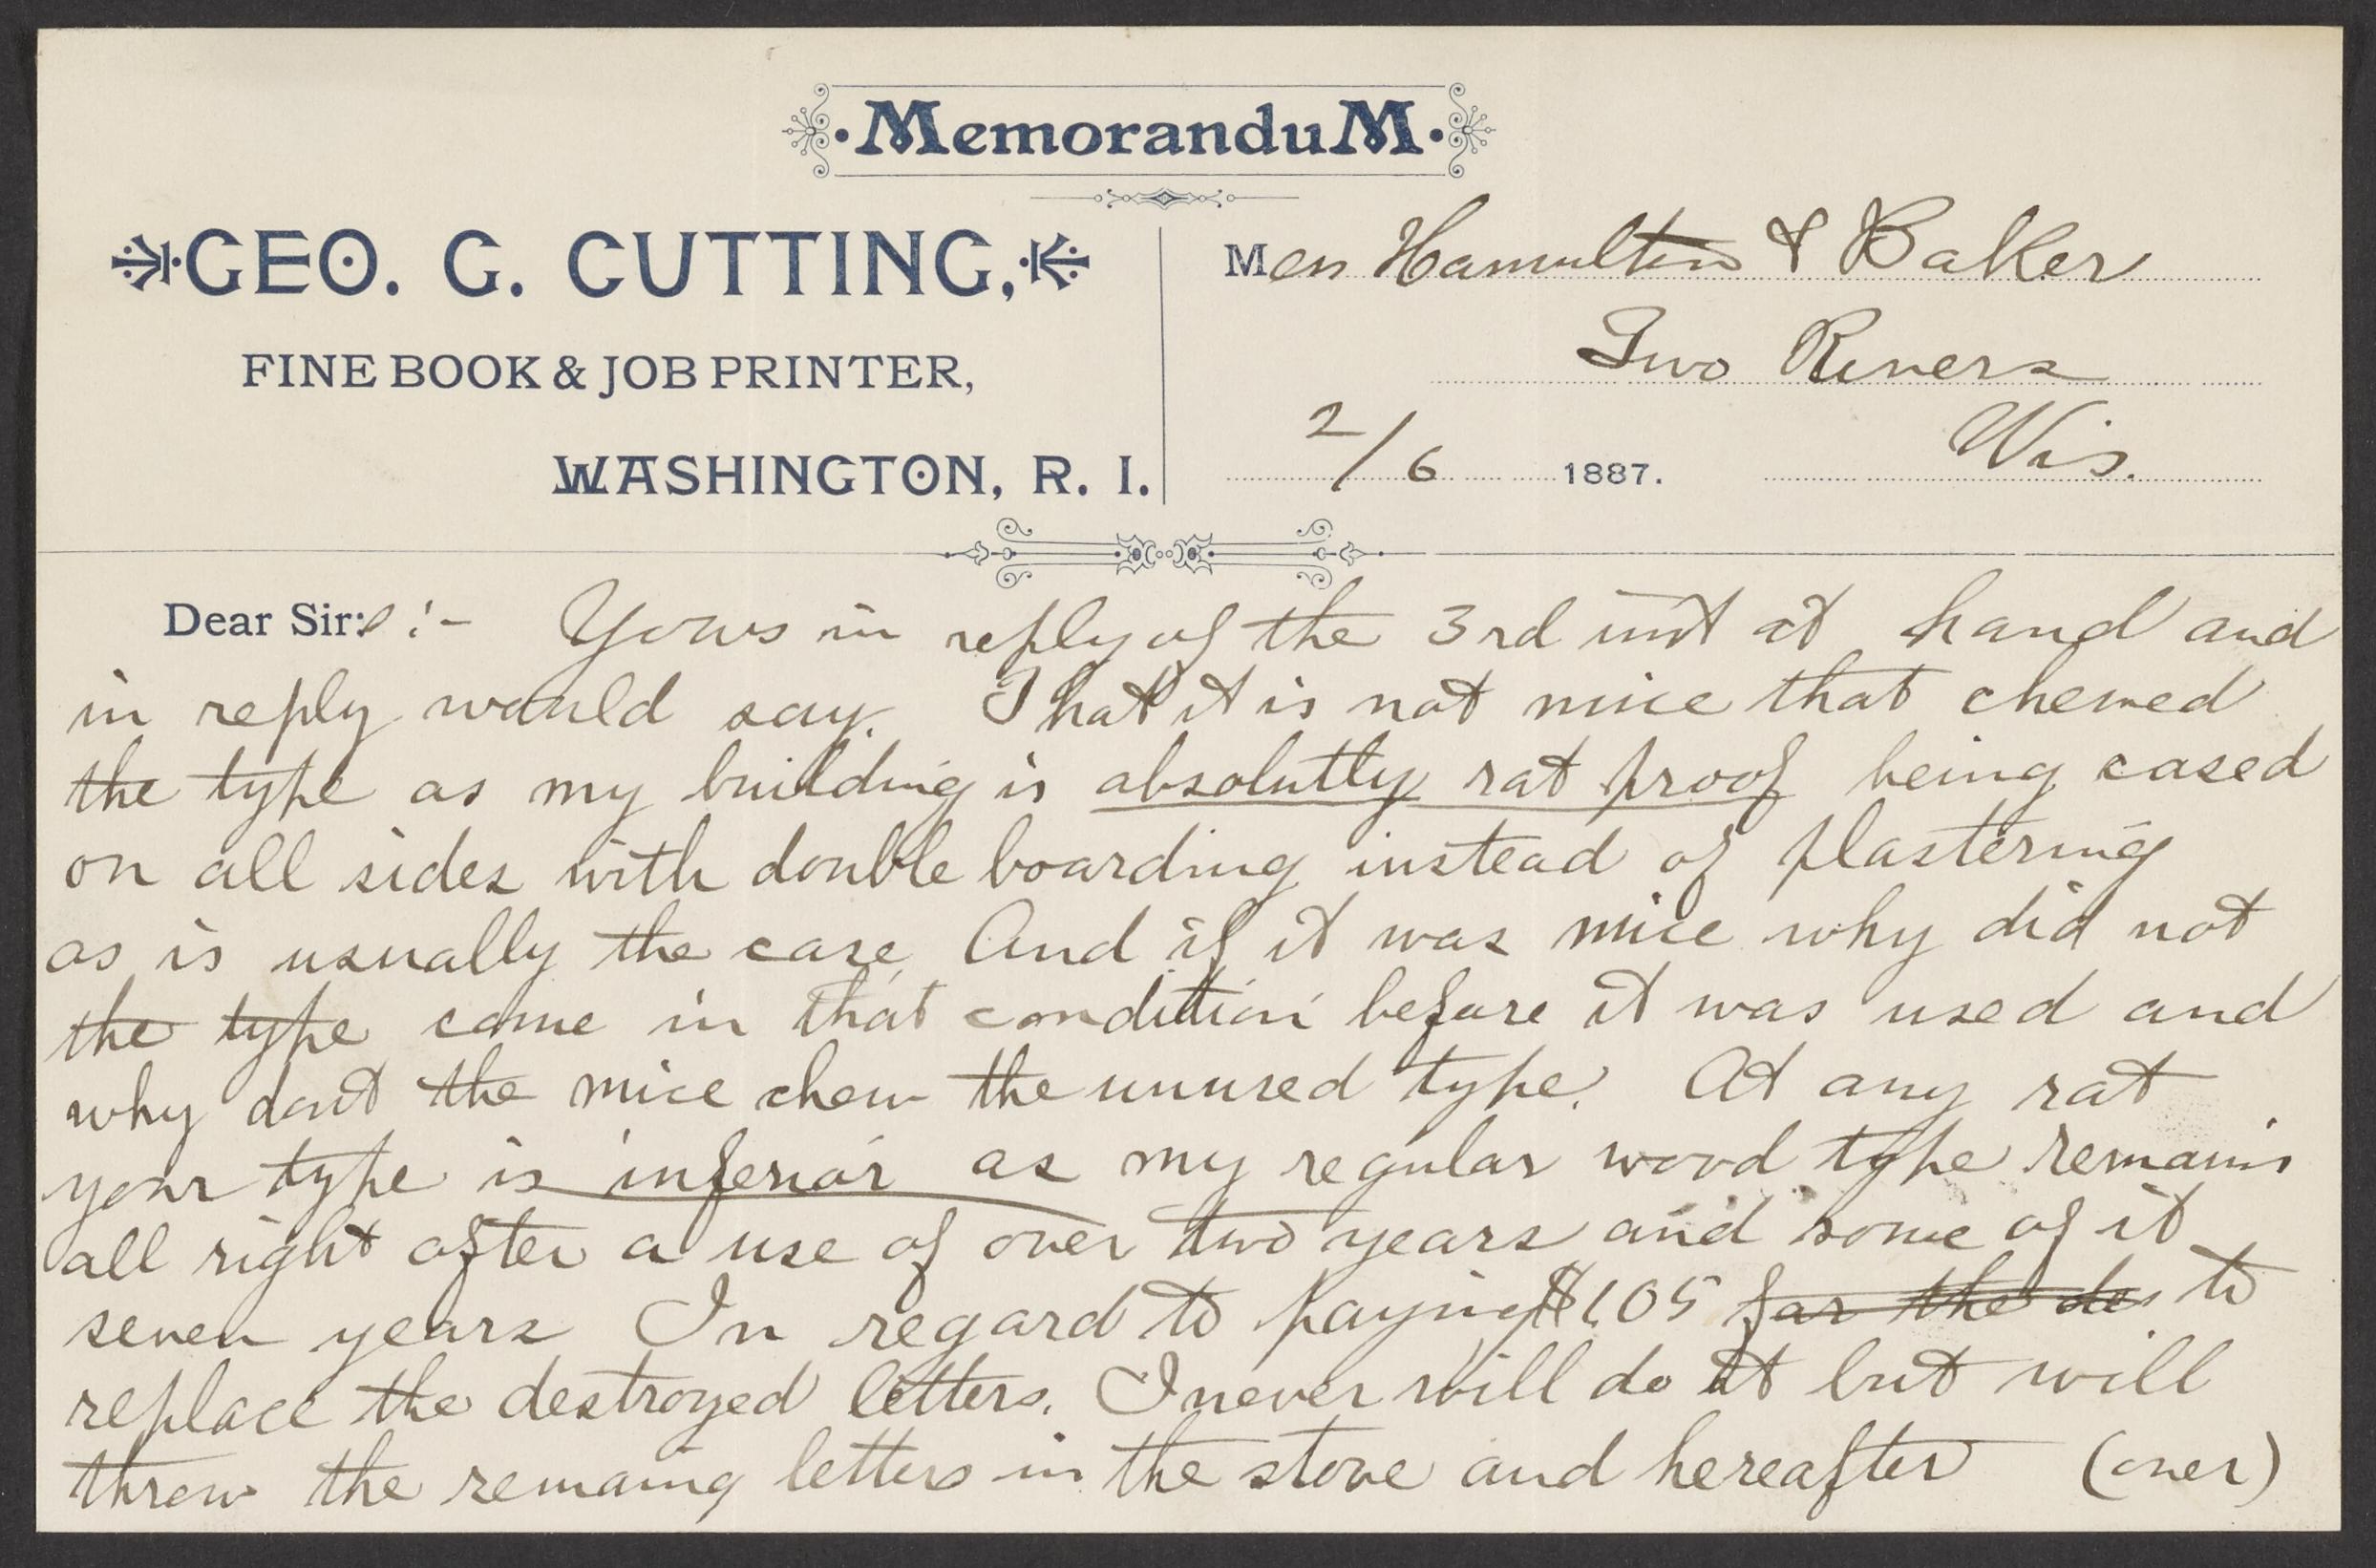 MemoranduM
GEO. G. CUTTING,
FINE BOOK & JOB PRINTER,
WASHINGTON, R. I.
Mess Hamilton & Baker
Two Rivers
Wis.
2/6 1887.
Dear Sirs:- Yours in reply of the 3rd inst at hand and
in reply would say. That it is not mice that chewed
the type as my building is absolutly rat proof being cased
on all sides with double boarding instead of plastering
as is usually the case And if it was mice why did not
the type come in that condition before it was used and
why dont the mice chew the unused type. At any rat
your type is inferior as my regular wood type remains
all right after a use of over two years and some of it
seven years In regard to paying $1.05 for the des to
replace the destroyed letters. I never will do it but will
throw the remaing letters in the stove and hereafter (over)